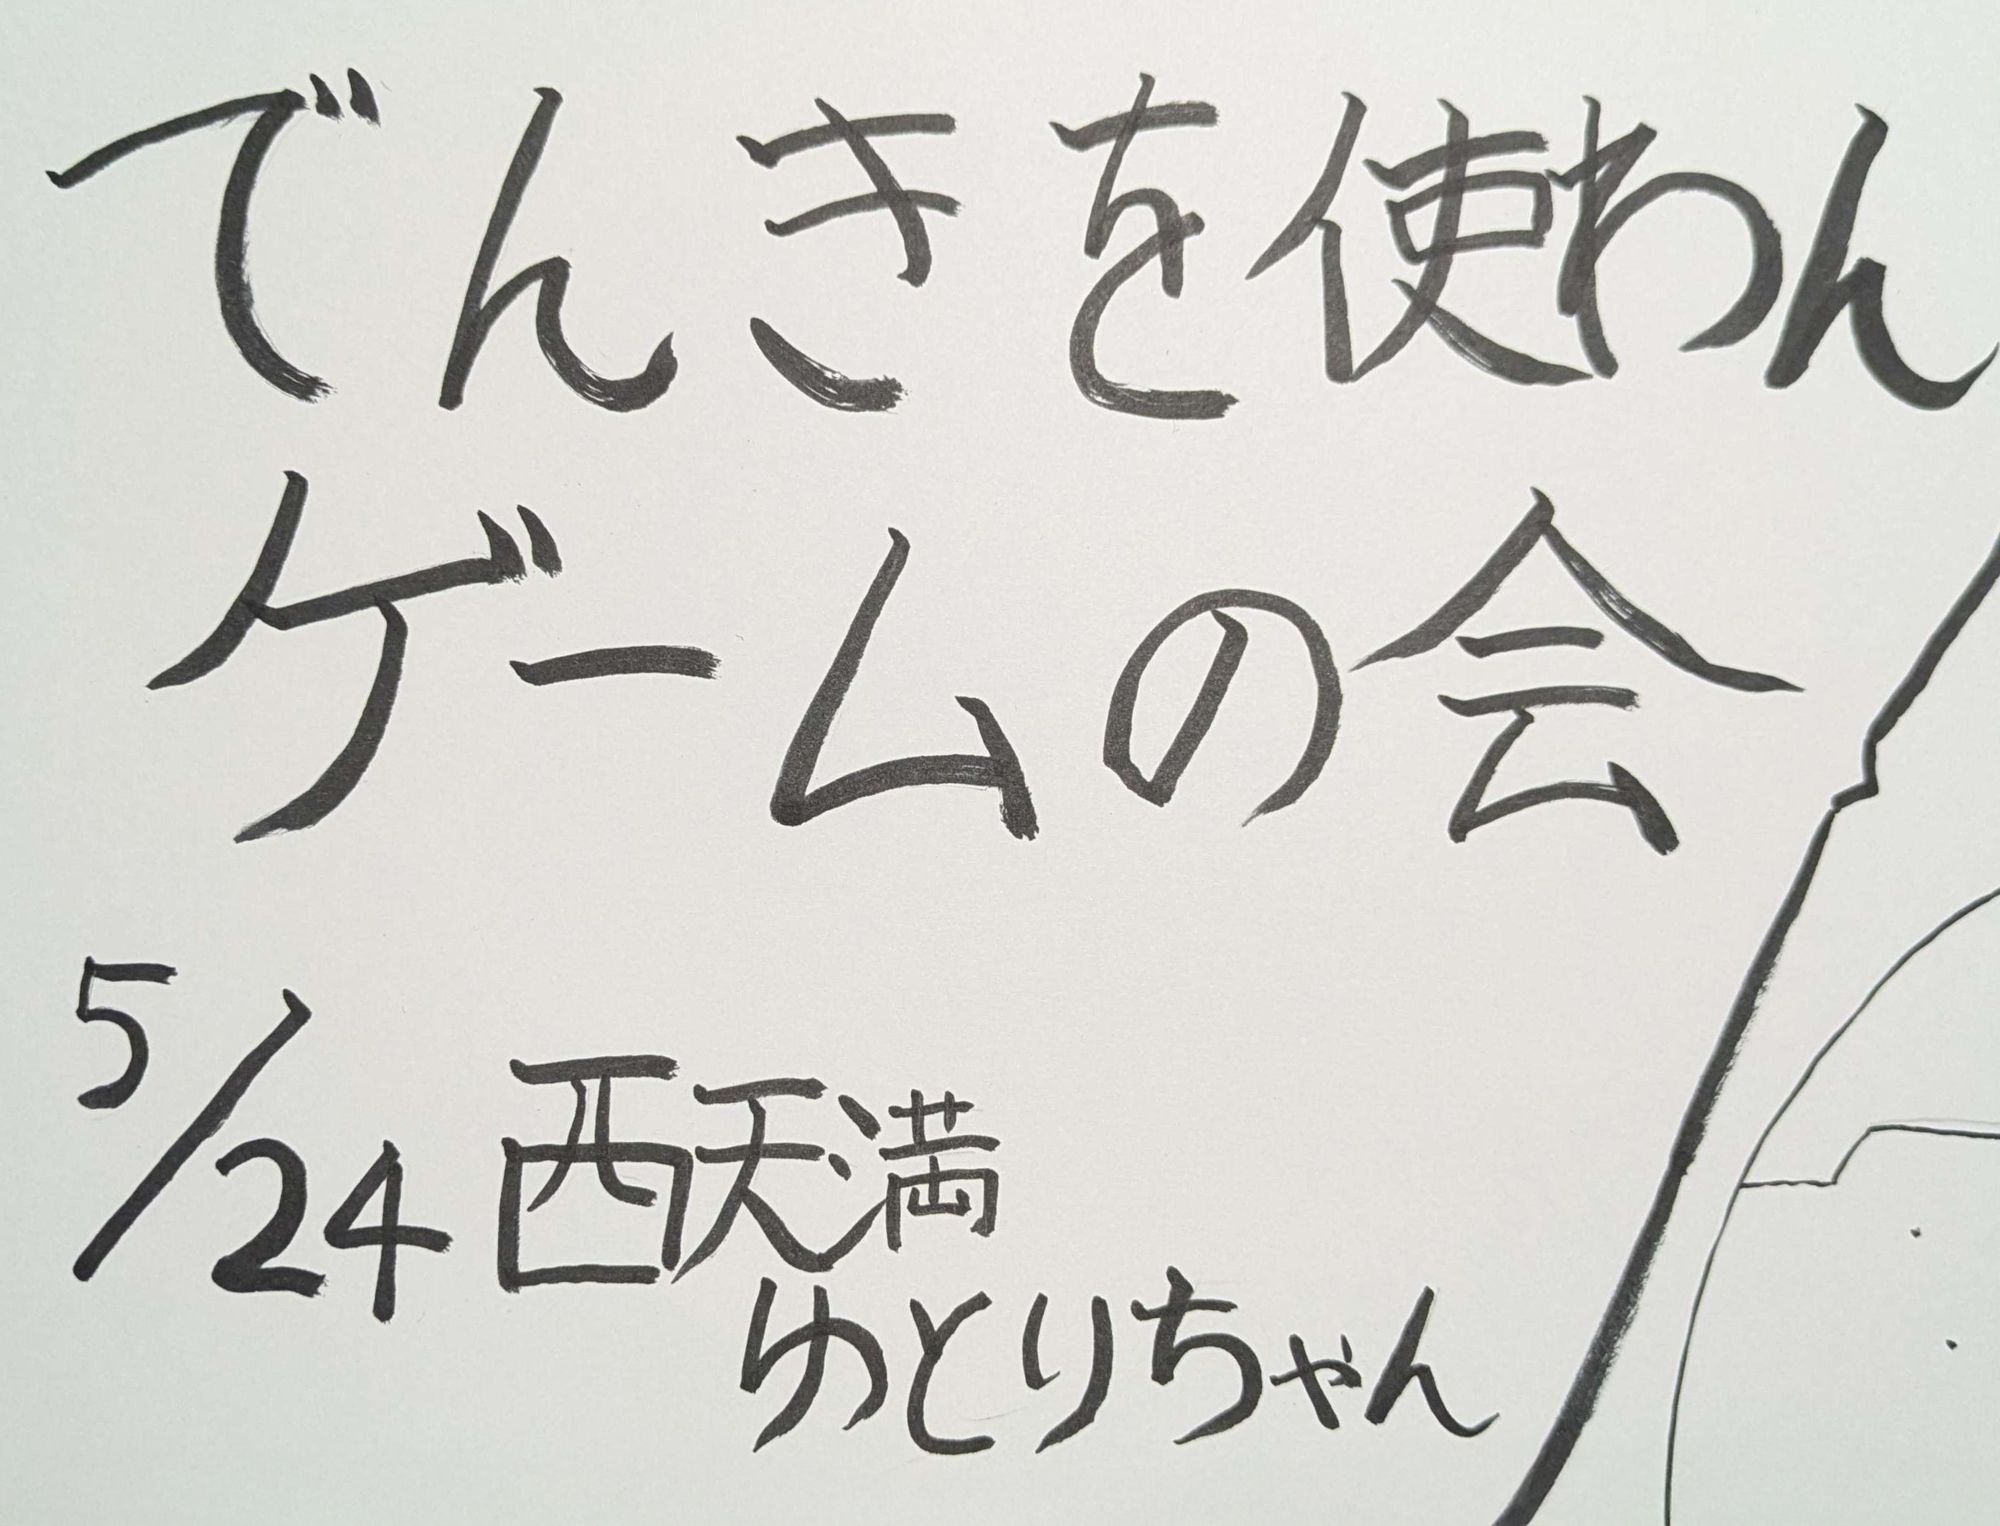 でんきを使わん
ゲームの会
5/24 西天満
ゆとりちゃん